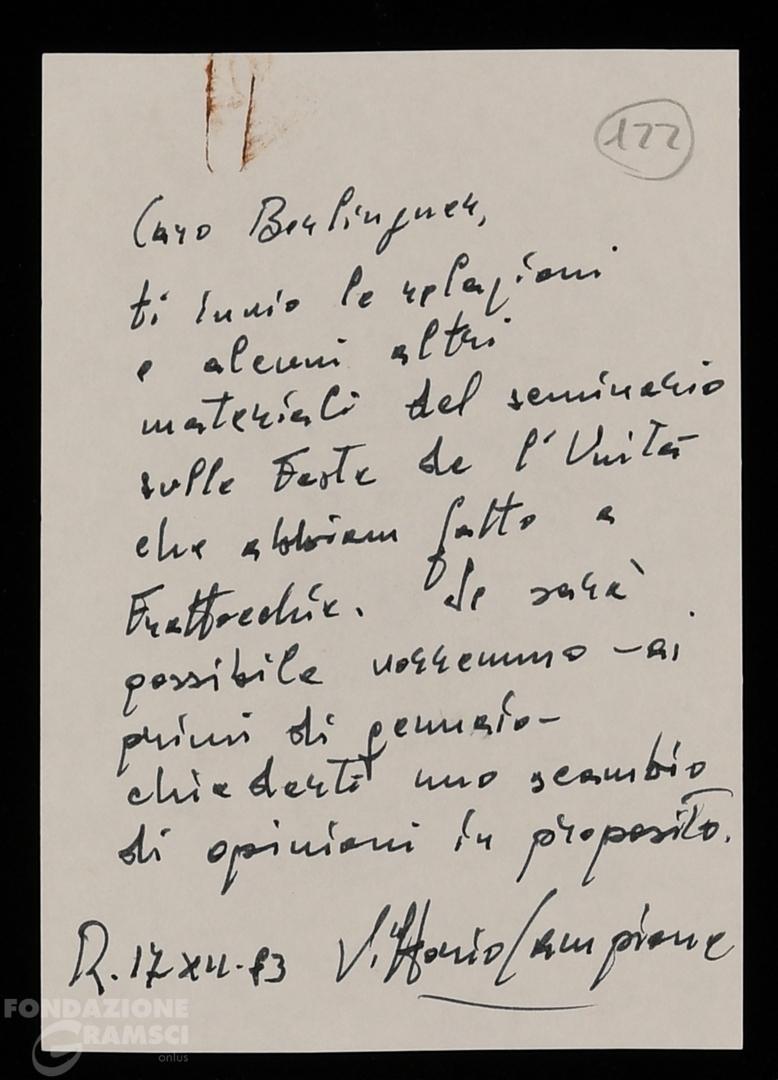 122
Caro Berlinguer,
ti invio le relazioni
e alcuni altri
materiali del seminario
sulle Feste de l'Unità
che abbiam fatto a
Frattocchie. Se sarà
possibile vorremmo - ai
primi di gennaio -
chiederti uno scambio
di opinioni in proposito.
R. 17 XII. 83 Vittorio Campione
FONDAZIONE
GRAMSCI
onlus